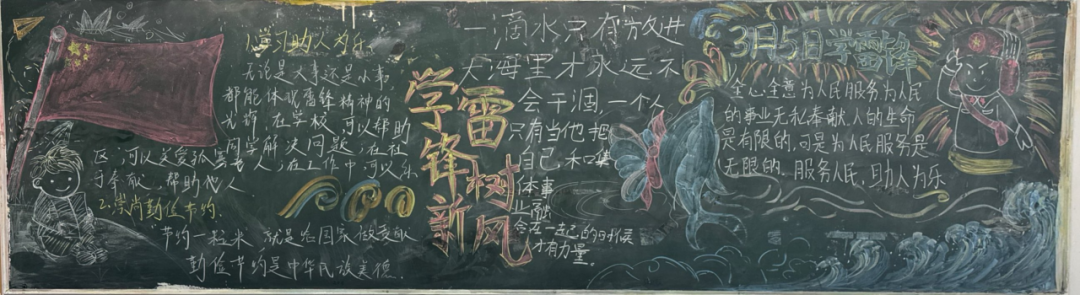 1.学习助人为乐
无论是大事还是小事,
都能体现雷锋精神的
光辉,在学校,可以帮助
同学解决问题,在社
区,可以关爱孤寡老人,在工作中,可以乐
于奉献,帮助他人
2.崇尚勤俭节约.
"节约一粒米 就是给国家做贡献
勤俭节约是中华民族美德.
学雷锋
树新风
一滴水只有放进
大海里才永远不
会干涸,一个人
只有当他把
自己和
体事
业融
合在一起的时候
才有力量。
3月5日学雷锋
全心全意为人民服务为人民
的事业无私奉献.人的生命
是有限的,可是为人民服务是
无限的.服务人民,助人为乐